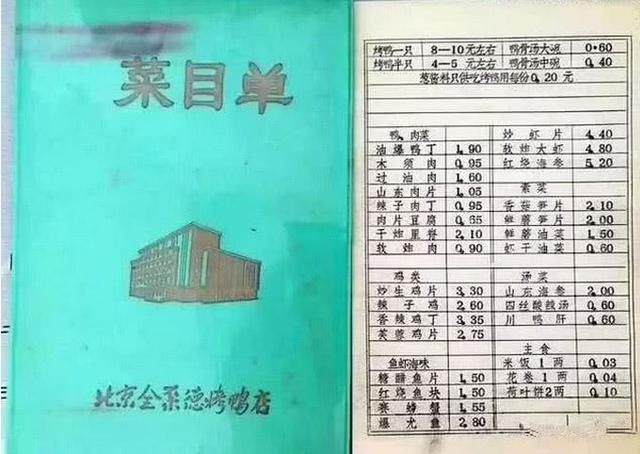 菜目单
北京全聚德烤鸭店
烤鸭一只 8—10元左右 鸭骨汤大碗 0.60
烤鸭半只 4—5元左右 鸭骨汤中碗 0.40
葱酱料只供吃烤鸭用每份0.20元
鸭、肉菜
油爆鸭丁 1.90
木须肉 0.95
过油肉 1.60
山东肉片 1.05
辣子肉丁 0.95
肉片豆腐 0.65
干炸里脊 2.10
软炸肉 0.90
鸡类
炒生鸡片 3.30
辣子鸡 2.60
香辣鸡丁 3.35
芙蓉鸡片 2.75
鱼虾海味
糖醋鱼片 1.50
红烧鱼块 1.50
赛螃蟹 1.55
爆尤鱼 2.80
炒虾片 4.40
软炸大虾 4.80
红烧海参 5.20
素菜
香菇笋片 2.10
鲜蘑笋片 2.00
鲜蘑油菜 1.50
虾干油菜 0.60
汤菜
山东海参 2.00
四丝酸辣汤 0.60
川鸭肝 0.60
主食
米饭1两 0.03
花卷1两 0.04
荷叶饼2两 0.10